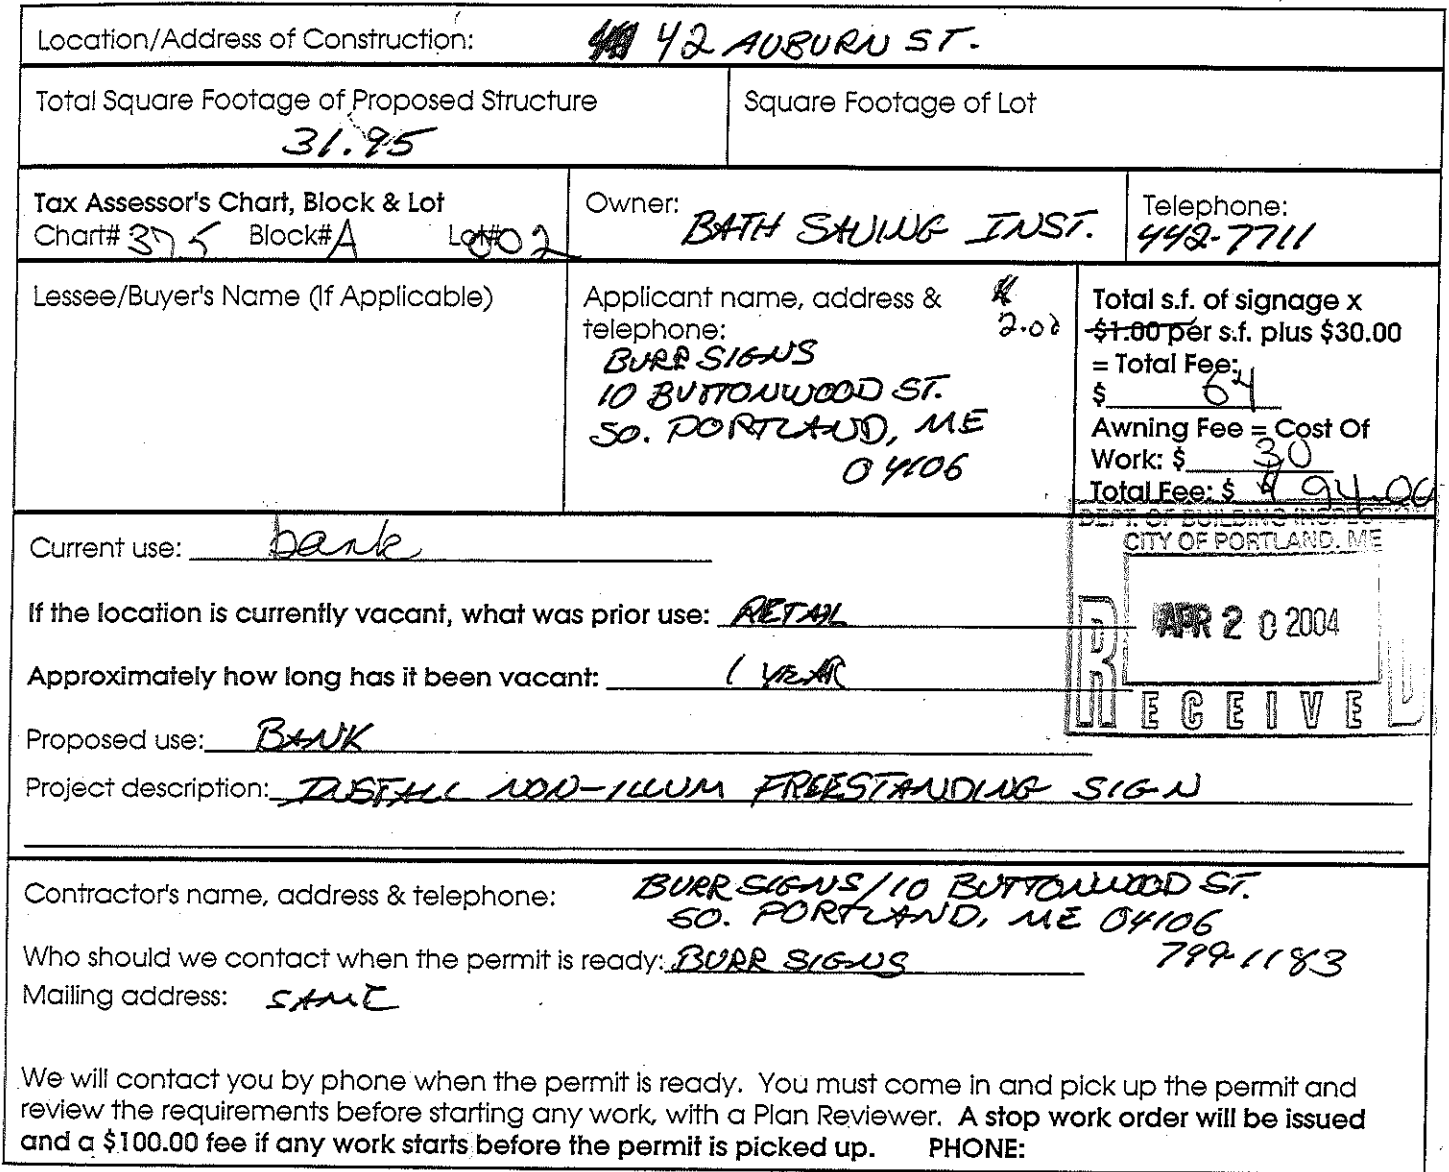 Location/Address of Construction: 42 AUBURN ST.
Total Square Footage of Proposed Structure
31.95
Square Footage of Lot
Tax Assessor's Chart, Block & Lot
Chart# 375 Block# A Lot# 002
Owner: BATH SAVING INST.
Telephone:
442-7711
Lessee/Buyer's Name (If Applicable)
Applicant name, address &
telephone:
BURR SIGNS
10 BUTTONWOOD ST.
SO. PORTLAND, ME
04106
$
2.00
Total s.f. of signage x
$1.00 per s.f. plus $30.00
= Total Fee:
$ 64
Awning Fee = Cost Of
Work: $ 30
Total Fee: $ $ 94.00
DEPT. OF BUILDING INSPECTION
CITY OF PORTLAND, ME
APR 20 2004
RECEIVED
Current use: bank
If the location is currently vacant, what was prior use: RETAIL
Approximately how long has it been vacant: 1 YEAR
Proposed use: BANK
Project description: INSTALL NON-ILLUM FREESTANDING SIGN
Contractor's name, address & telephone: BURR SIGNS/10 BUTTONWOOD ST.
SO. PORTLAND, ME 04106
Who should we contact when the permit is ready: BURR SIGNS 799-1183
Mailing address: SAME
We will contact you by phone when the permit is ready. You must come in and pick up the permit and
review the requirements before starting any work, with a Plan Reviewer. A stop work order will be issued
and a $100.00 fee if any work starts before the permit is picked up. PHONE: